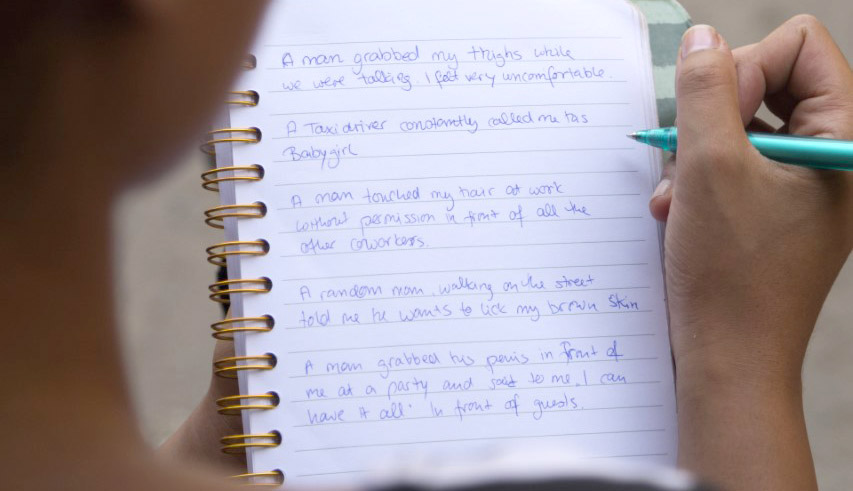 A man grabbed my thighs while
we were talking. I felt very uncomfortable.
A Taxi driver constantly called me as
Babygirl
A man touched my hair at work
without permission in front of all the
other coworkers.
A random man, walking on the street
told me he wants to lick my brown skin
A man grabbed his penis in front of
me at a party and said to me, I can
have it all. In front of guests.